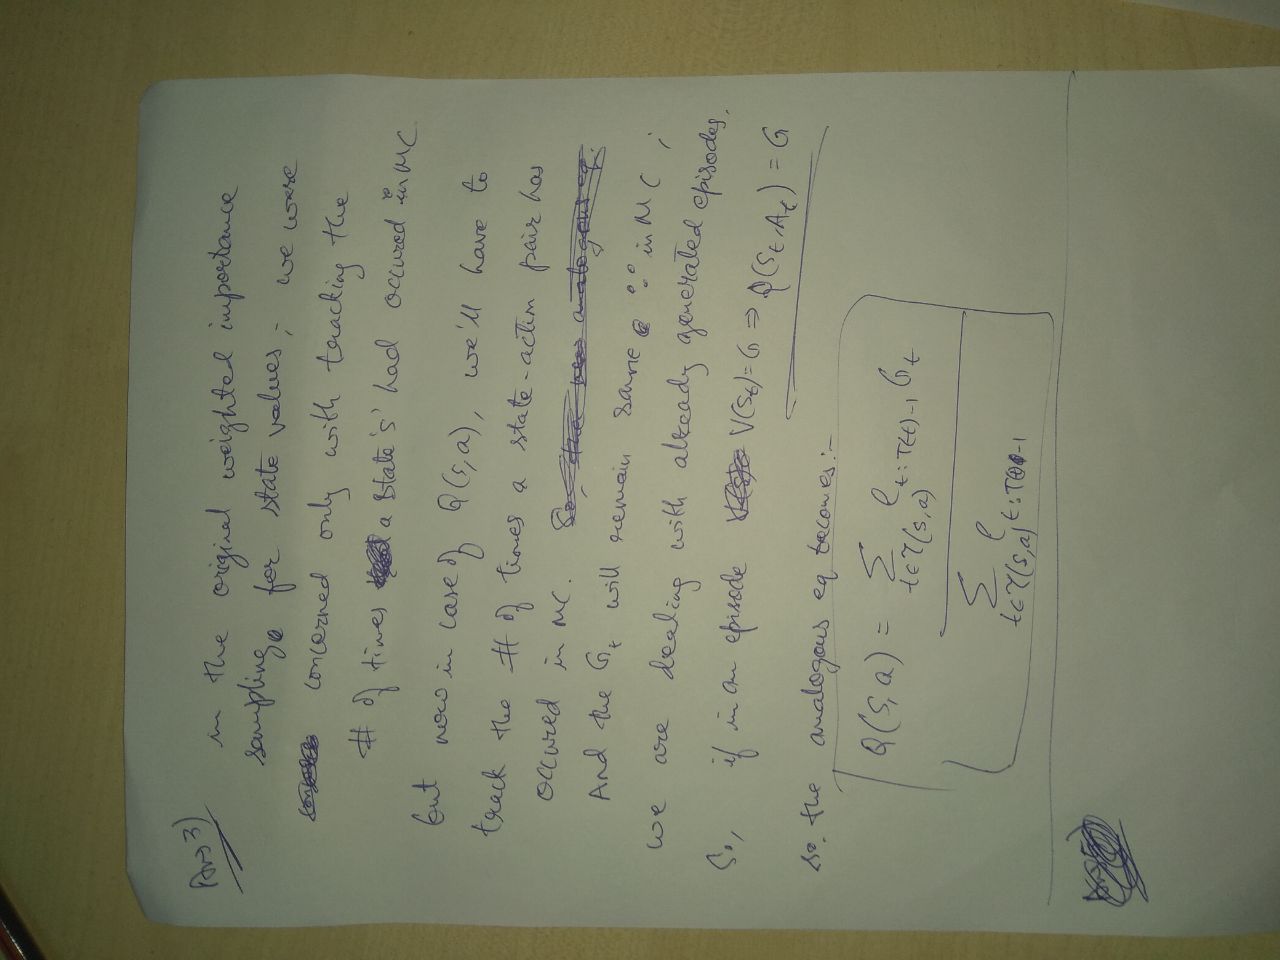 Ans 3)
in the original weighted importance
sampling for state values, we were
concerned only with tracking the
# of times a state 's' had occured in MC
but now in case of Q(s,a), we'll have to
track the # of times a state-action pair has
occured in MC.
And the G_t will remain same ∵ in MC,
we are dealing with already generated episodes,
So, if in an episode V(S_t)=G ⇒ Q(S_t,A_t) = G
so. the analogous eq becomes:-
Q(s,a) = Σ_{t∈τ(s,a)} ρ_{t:T(t)-1} G_t
Σ_{t∈τ(s,a)} ρ_{t:T(t)-1}